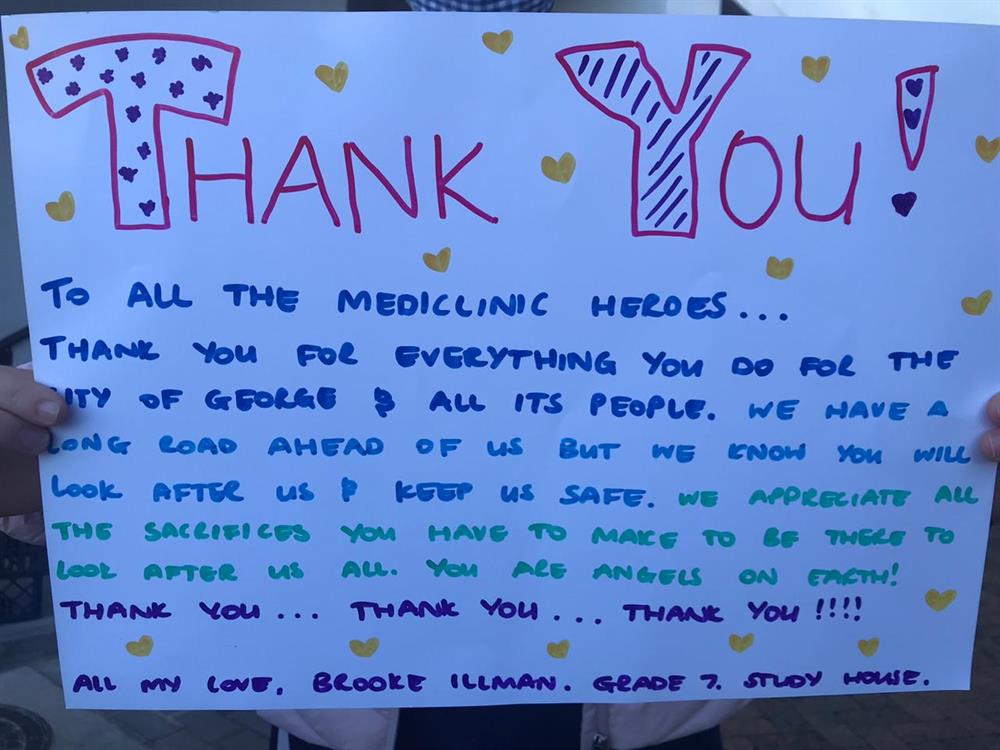 THANK YOU!
TO ALL THE MEDICLINIC HEROES...
THANK YOU FOR EVERYTHING YOU DO FOR THE
CITY OF GEORGE & ALL ITS PEOPLE. WE HAVE A
LONG ROAD AHEAD OF US BUT WE KNOW YOU WILL
LOOK AFTER US & KEEP US SAFE. WE APPRECIATE ALL
THE SACRIFICES YOU HAVE TO MAKE TO BE THERE TO
LOOK AFTER US ALL. YOU ARE ANGELS ON EARTH!
THANK YOU... THANK YOU... THANK YOU!!!!
ALL MY LOVE, BROOKE ILLMAN. GRADE 7. STUDY HOUSE.